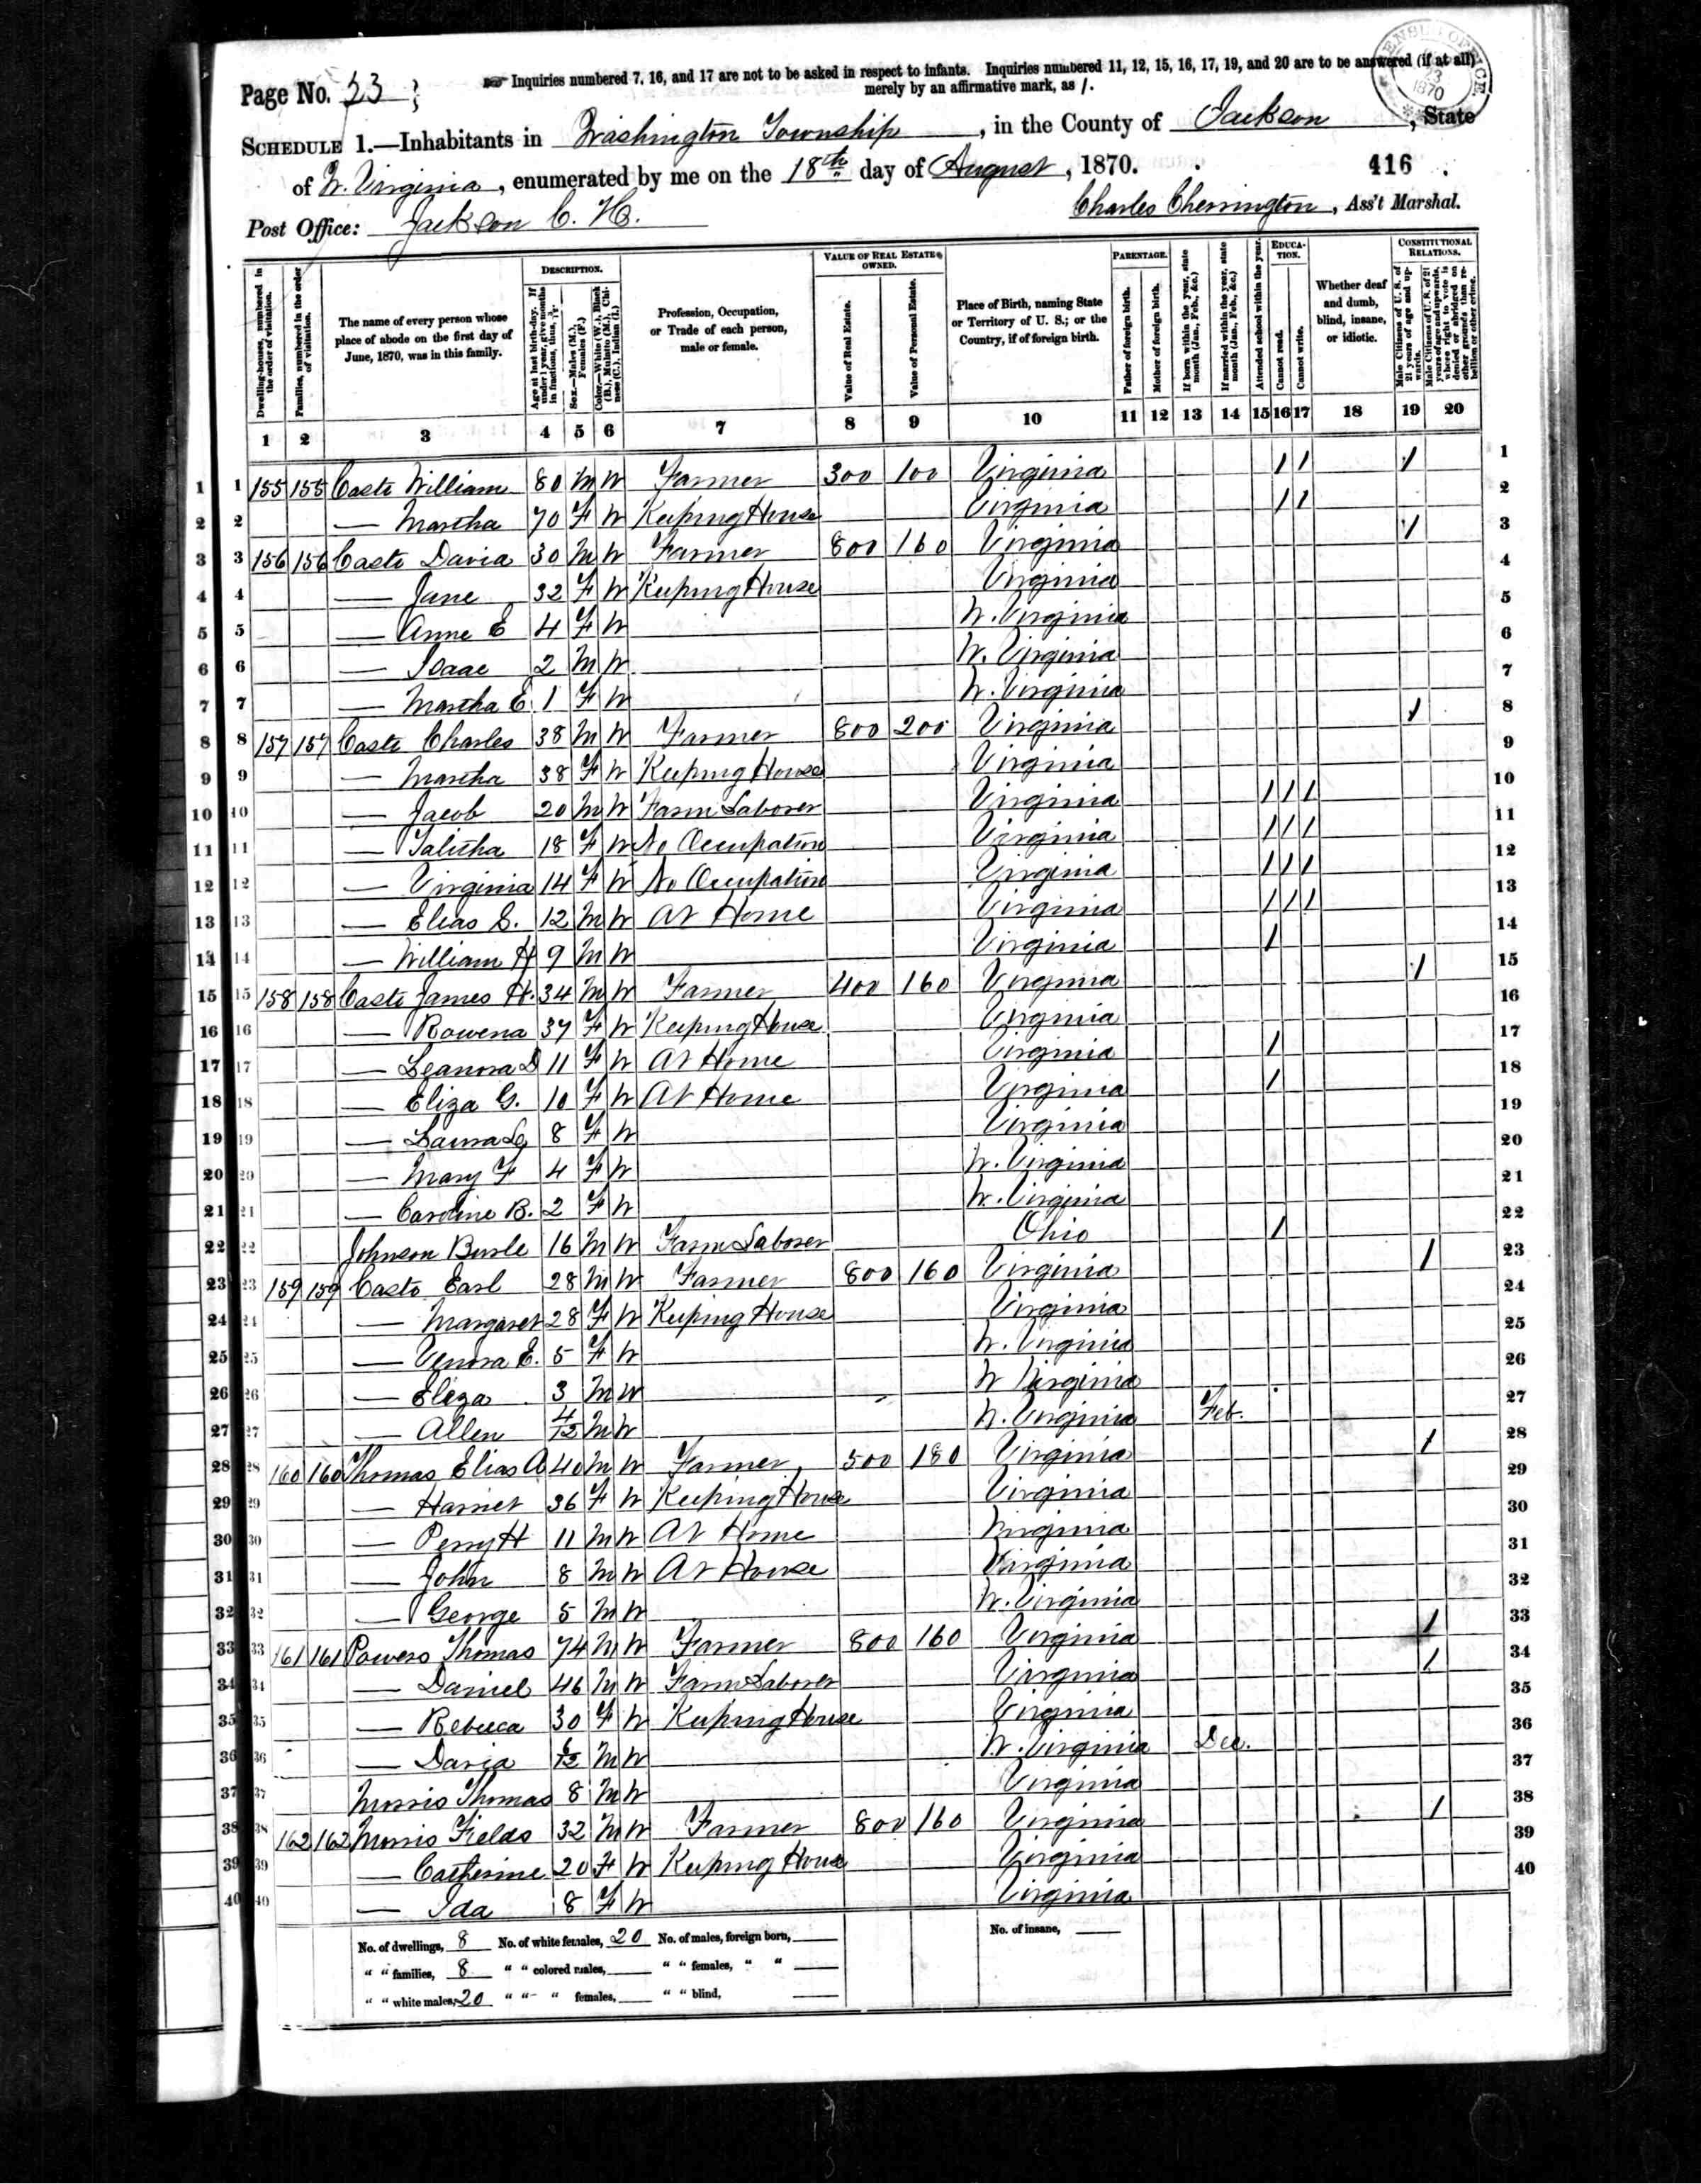 Page No. 23
☞ Inquiries numbered 7, 16, and 17 are not to be asked in respect to infants. Inquiries numbered 11, 12, 15, 16, 17, 19, and 20 are to be answered (if at all)
merely by an affirmative mark, as /.
SCHEDULE 1.—Inhabitants in Washington Township, in the County of Jackson, State
of W. Virginia, enumerated by me on the 18th day of August, 1870.
416
Post Office: Jackson C. H.
Charles Cherrington, Ass't Marshal.
Dwelling-houses, numbered in the order of visitation.
Families, numbered in the order of visitation.
The name of every person whose place of abode on the first day of June, 1870, was in this family.
DESCRIPTION.
Age at last birth-day. If under 1 year, give months in fractions, thus, 3/12.
Sex.—Males (M.), Females (F.)
Color.—White (W.), Black (B.), Mulatto (M.), Chinese (C.), Indian (I.)
Profession, Occupation, or Trade of each person, male or female.
VALUE OF REAL ESTATE OWNED.
Value of Real Estate.
Value of Personal Estate.
Place of Birth, naming State or Territory of U. S.; or the Country, if of foreign birth.
PARENTAGE.
Father of foreign birth.
Mother of foreign birth.
If born within the year, state month (Jan., Feb., &c.)
If married within the year, state month (Jan., Feb., &c.)
Attended school within the year.
EDUCATION.
Cannot read.
Cannot write.
Whether deaf and dumb, blind, insane, or idiotic.
CONSTITUTIONAL RELATIONS.
Male Citizens of U. S. of 21 years of age and upwards.
Male Citizens of U. S. of 21 years of age and upwards, whose right to vote is denied or abridged on other grounds than rebellion or other crime.
1 2 3 4 5 6 7 8 9 10 11 12 13 14 15 16 17 18 19 20
1 1 155 155 Casto William 80 M W Farmer 300 100 Virginia / / / 1
2 2 — Martha 70 F W Keeping House Virginia / / 2
3 3 156 156 Casto David 30 M W Farmer 800 160 Virginia / 3
4 4 — Jane 32 F W Keeping House Virginia 4
5 5 — Anne E 4 F W W. Virginia 5
6 6 — Isaac 2 M W W. Virginia 6
7 7 — Martha E. 1 F W W. Virginia 7
8 8 157 157 Casto Charles 38 M W Farmer 800 200 Virginia / 8
9 9 — Martha 38 F W Keeping House Virginia 9
10 10 — Jacob 20 M W Farm Laborer Virginia / / / 10
11 11 — Talitha 18 F W No Occupation Virginia / / / 11
12 12 — Virginia 14 F W No Occupation Virginia / / / 12
13 13 — Elias S. 12 M W At Home Virginia / / / 13
14 14 — William H 9 M W Virginia / 14
15 15 158 158 Casto James H. 34 M W Farmer 400 160 Virginia / 15
16 16 — Rowena 37 F W Keeping House Virginia 16
17 17 — Leanora D 11 F W At Home Virginia / 17
18 18 — Eliza G. 10 F W At Home Virginia / 18
19 19 — Laura 8 F W Virginia 19
20 20 — Mary F 4 F W W. Virginia 20
21 21 — Caroline B. 2 F W W. Virginia 21
22 22 Johnson Burle 16 M W Farm Laborer Ohio / 22
23 23 159 159 Casto Earl 28 M W Farmer 800 160 Virginia / 23
24 24 — Margaret 28 F W Keeping House Virginia 24
25 25 — Venora E. 5 F W W. Virginia 25
26 26 — Eliza 3 M W W Virginia 26
27 27 — Allen 4/12 M W W. Virginia Feb. 27
28 28 160 160 Thomas Elias A 40 M W Farmer 500 180 Virginia / 28
29 29 — Harriet 36 F W Keeping House Virginia 29
30 30 — Perry H 11 M W At Home Virginia 30
31 31 — John 8 M W At House Virginia 31
32 32 — George 5 M W W. Virginia 32
33 33 161 161 Powers Thomas 74 M W Farmer 800 160 Virginia / 33
34 34 — Daniel 46 M W Farm Laborer Virginia / 34
35 35 — Rebecca 30 F W Keeping House Virginia 35
36 36 — David 6/12 M W W. Virginia Dec. 36
37 37 Morris Thomas 8 M W Virginia 37
38 38 162 162 Morris Fields 32 M W Farmer 800 160 Virginia / 38
39 39 — Catherine 20 F W Keeping House Virginia 39
40 40 — Ida 8 F W Virginia 40
No. of dwellings, 8 No. of white females, 20 No. of males, foreign born, No. of insane,
" " families, 8 " " colored males, " " females, " "
" " white males, 20 " " " females, " " blind,